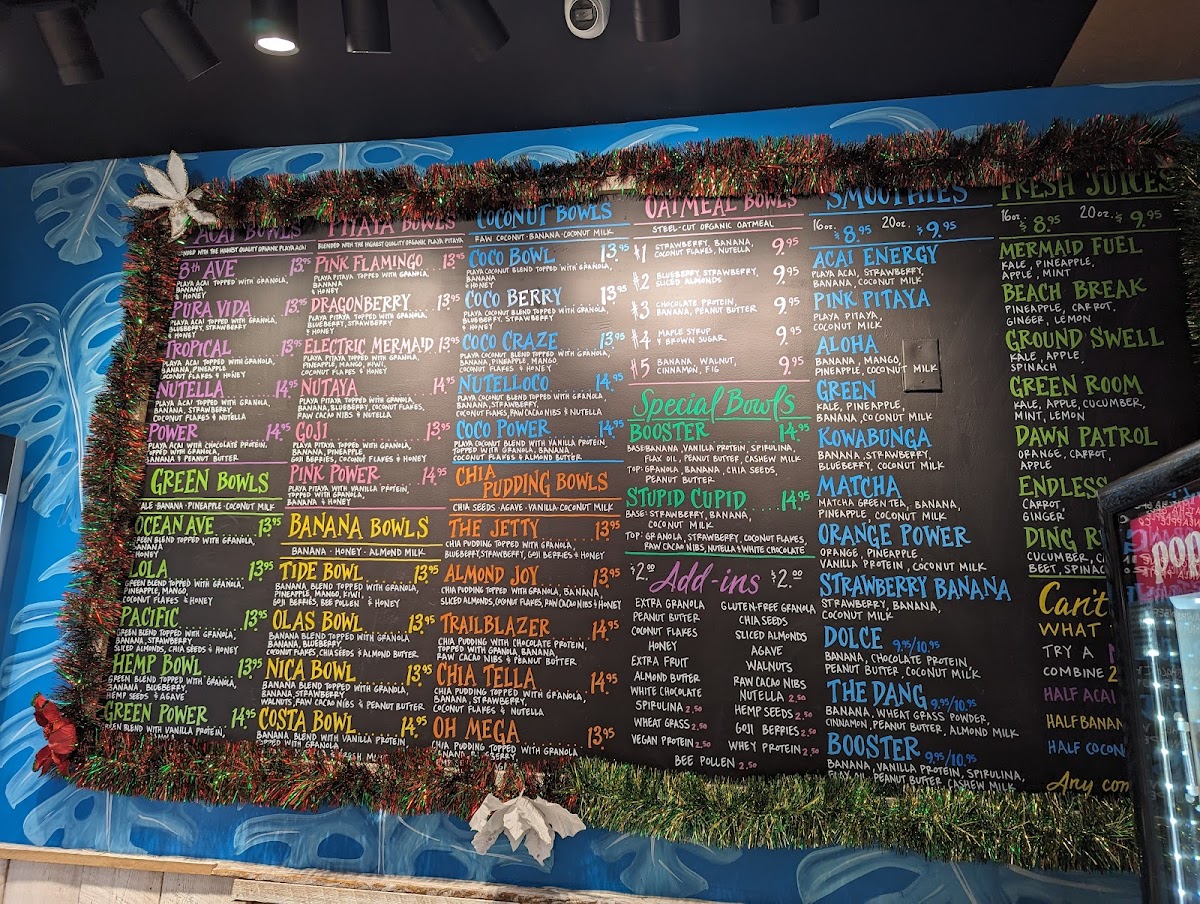 ACAI BOWLS
BLENDED WITH THE HIGHEST QUALITY ORGANIC PLAYA ACAI
8TH AVE 13.95
PLAYA ACAI TOPPED WITH GRANOLA,
BANANA
& HONEY
PURA VIDA 13.95
PLAYA ACAI TOPPED WITH GRANOLA,
BLUEBERRY, STRAWBERRY
& HONEY
TROPICAL 13.95
PLAYA ACAI TOPPED WITH GRANOLA,
BANANA, PINEAPPLE, MANGO
COCONUT FLAKES & HONEY
NUTELLA 14.95
PLAYA ACAI TOPPED WITH GRANOLA,
BANANA, STRAWBERRY,
COCONUT FLAKES & NUTELLA
POWER 14.95
PLAYA ACAI WITH CHOCOLATE PROTEIN,
TOPPED WITH GRANOLA,
BANANA & PEANUT BUTTER
GREEN BOWLS
KALE · BANANA · PINEAPPLE · COCONUT MILK
OCEAN AVE 13.95
GREEN BLEND TOPPED WITH GRANOLA,
BANANA
& HONEY
LOLA 13.95
GREEN BLEND TOPPED WITH GRANOLA,
PINEAPPLE, MANGO,
COCONUT FLAKES & HONEY
PACIFIC 13.95
GREEN BLEND TOPPED WITH GRANOLA,
BANANA, STRAWBERRY
SLICED ALMONDS, CHIA SEEDS & HONEY
HEMP BOWL 13.95
GREEN BLEND TOPPED WITH GRANOLA,
BANANA, BLUEBERRY,
HEMP SEEDS & AGAVE
GREEN POWER 14.95
GREEN BLEND WITH VANILLA PROTEIN,
PITAYA BOWLS
BLENDED WITH THE HIGHEST QUALITY ORGANIC PLAYA PITAYA
PINK FLAMINGO 13.95
PLAYA PITAYA TOPPED WITH GRANOLA,
BANANA
& HONEY
DRAGONBERRY 13.95
PLAYA PITAYA TOPPED WITH GRANOLA,
BLUEBERRY, STRAWBERRY
& HONEY
ELECTRIC MERMAID 13.95
PLAYA PITAYA TOPPED WITH GRANOLA,
PINEAPPLE, MANGO, KIWI,
COCONUT FLAKES & HONEY
NUTAYA 14.95
PLAYA PITAYA TOPPED WITH GRANOLA,
BANANA, BLUEBERRY, COCONUT FLAKES,
RAW CACAO NIBS & NUTELLA
GOJI 13.95
PLAYA PITAYA TOPPED WITH GRANOLA,
BANANA, PINEAPPLE,
GOJI BERRIES, COCONUT FLAKES & HONEY
PINK POWER 14.95
PLAYA PITAYA WITH VANILLA PROTEIN,
TOPPED WITH GRANOLA,
BANANA & HONEY
BANANA BOWLS
BANANA · HONEY · ALMOND MILK
TIDE BOWL 13.95
BANANA BLEND TOPPED WITH GRANOLA,
PINEAPPLE, MANGO, KIWI,
GOJI BERRIES, BEE POLLEN & HONEY
OLAS BOWL 13.95
BANANA BLEND TOPPED WITH GRANOLA,
BANANA, BLUEBERRY,
COCONUT FLAKES, CHIA SEEDS & ALMOND BUTTER
NICA BOWL 13.95
BANANA BLEND TOPPED WITH GRANOLA,
BANANA, STRAWBERRY,
WALNUTS, RAW CACAO NIBS & PEANUT BUTTER
COSTA BOWL 14.95
BANANA BLEND WITH VANILLA PROTEIN,
TOPPED WITH GRANOLA,
COCONUT BOWLS
RAW COCONUT · BANANA · COCONUT MILK
COCO BOWL 13.95
PLAYA COCONUT BLEND TOPPED WITH GRANOLA,
BANANA
& HONEY
COCO BERRY 13.95
PLAYA COCONUT BLEND TOPPED WITH GRANOLA,
BLUEBERRY, STRAWBERRY
& HONEY
COCO CRAZE 13.95
PLAYA COCONUT BLEND TOPPED WITH GRANOLA,
BANANA, PINEAPPLE, MANGO
COCONUT FLAKES & HONEY
NUTELLOCO 14.95
PLAYA COCONUT BLEND TOPPED WITH GRANOLA,
BANANA, STRAWBERRY,
COCONUT FLAKES, RAW CACAO NIBS & NUTELLA
COCO POWER 14.95
PLAYA COCONUT BLEND WITH VANILLA PROTEIN,
TOPPED WITH GRANOLA,
BANANA & ALMOND BUTTER
CHIA
PUDDING BOWLS
CHIA SEEDS · AGAVE · VANILLA · COCONUT MILK
THE JETTY 13.95
CHIA PUDDING TOPPED WITH GRANOLA,
BLUEBERRY, STRAWBERRY, GOJI BERRIES & HONEY
ALMOND JOY 13.95
CHIA PUDDING TOPPED WITH GRANOLA, BANANA,
SLICED ALMONDS, COCONUT FLAKES, RAW CACAO NIBS & HONEY
TRAILBLAZER 14.95
CHIA PUDDING WITH CHOCOLATE PROTEIN,
TOPPED WITH GRANOLA, BANANA,
RAW CACAO NIBS & PEANUT BUTTER
CHIA TELLA 14.95
CHIA PUDDING TOPPED WITH GRANOLA,
BANANA, STRAWBERRY,
COCONUT FLAKES & NUTELLA
OH MEGA 13.95
CHIA PUDDING TOPPED WITH GRANOLA,
OATMEAL BOWLS
STEEL-CUT ORGANIC OATMEAL
#1 STRAWBERRY, BANANA,
COCONUT FLAKES, NUTELLA 9.95
#2 BLUEBERRY, STRAWBERRY,
SLICED ALMONDS 9.95
#3 CHOCOLATE PROTEIN,
BANANA, PEANUT BUTTER 9.95
#4 MAPLE SYRUP
& BROWN SUGAR 9.95
#5 BANANA, WALNUT,
CINNAMON, FIG 9.95
Special Bowls
BOOSTER 14.95
BASE: BANANA, VANILLA PROTEIN, SPIRULINA,
FLAX OIL, PEANUT BUTTER, CASHEW MILK
TOP: GRANOLA, BANANA, CHIA SEEDS,
PEANUT BUTTER
STUPID CUPID 14.95
BASE: STRAWBERRY, BANANA,
COCONUT MILK
TOP: GRANOLA, STRAWBERRY, COCONUT FLAKES,
RAW CACAO NIBS, NUTELLA & WHITE CHOCOLATE
$2.00 Add-ins $2.00
EXTRA GRANOLA
PEANUT BUTTER
COCONUT FLAKES
HONEY
EXTRA FRUIT
ALMOND BUTTER
WHITE CHOCOLATE
SPIRULINA 2.50
WHEAT GRASS 2.50
VEGAN PROTEIN 2.50
GLUTEN-FREE GRANOLA
CHIA SEEDS
SLICED ALMONDS
AGAVE
WALNUTS
RAW CACAO NIBS
NUTELLA 2.50
HEMP SEEDS 2.50
GOJI BERRIES 2.50
WHEY PROTEIN 2.50
BEE POLLEN 2.50
SMOOTHIES
16oz. $8.95 20oz. $9.95
ACAI ENERGY
PLAYA ACAI, STRAWBERRY,
BANANA, COCONUT MILK
PINK PITAYA
PLAYA PITAYA,
COCONUT MILK
ALOHA
BANANA, MANGO,
PINEAPPLE, COCONUT MILK
GREEN
KALE, PINEAPPLE,
BANANA, COCONUT MILK
KOWABUNGA
BANANA, STRAWBERRY,
BLUEBERRY, COCONUT MILK
MATCHA
MATCHA GREEN TEA, BANANA,
PINEAPPLE, COCONUT MILK
ORANGE POWER
ORANGE, PINEAPPLE,
VANILLA PROTEIN, COCONUT MILK
STRAWBERRY BANANA
STRAWBERRY, BANANA,
COCONUT MILK
DOLCE 9.95/10.95
BANANA, CHOCOLATE PROTEIN,
PEANUT BUTTER, COCONUT MILK
THE DANG 9.95/10.95
BANANA, WHEAT GRASS POWDER,
CINNAMON, PEANUT BUTTER, ALMOND MILK
BOOSTER 9.95/10.95
BANANA, VANILLA PROTEIN, SPIRULINA,
FLAX OIL, PEANUT BUTTER, CASHEW MILK
FRESH JUICES
16oz. $8.95 20oz. $9.95
MERMAID FUEL
KALE, PINEAPPLE,
APPLE, MINT
BEACH BREAK
PINEAPPLE, CARROT,
GINGER, LEMON
GROUND SWELL
KALE, APPLE,
SPINACH
GREEN ROOM
KALE, APPLE, CUCUMBER,
MINT, LEMON
DAWN PATROL
ORANGE, CARROT,
APPLE
ENDLESS
CARROT,
GINGER
DING R
CUCUMBER, C
BEET, SPINAC
Can't
WHAT
TRY A
COMBINE 2
HALF ACAI
HALF BANAN
HALF COCON
Any com
pop